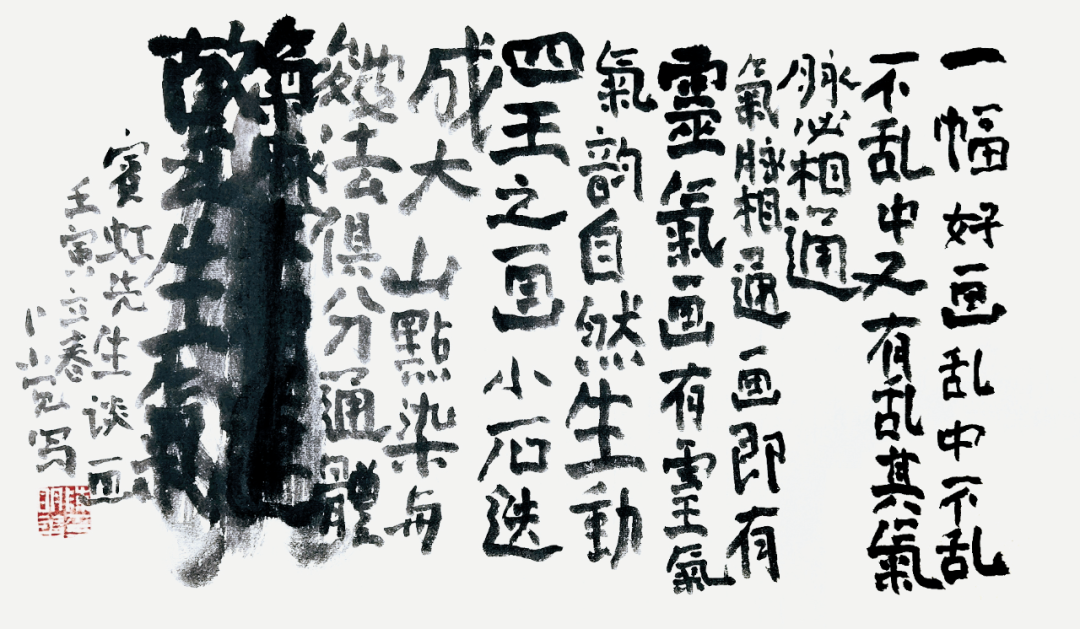 一幅好画乱中不乱
不乱中又有乱其氣
脉必相通
氣脉相通画即有
靈氣画有靈氣
氣韵自然生動
四王之画小石迭
成大山點染与
皴法俱分通體
氣脉不相連
生氣
賓虹先生谈画
壬寅立春
写